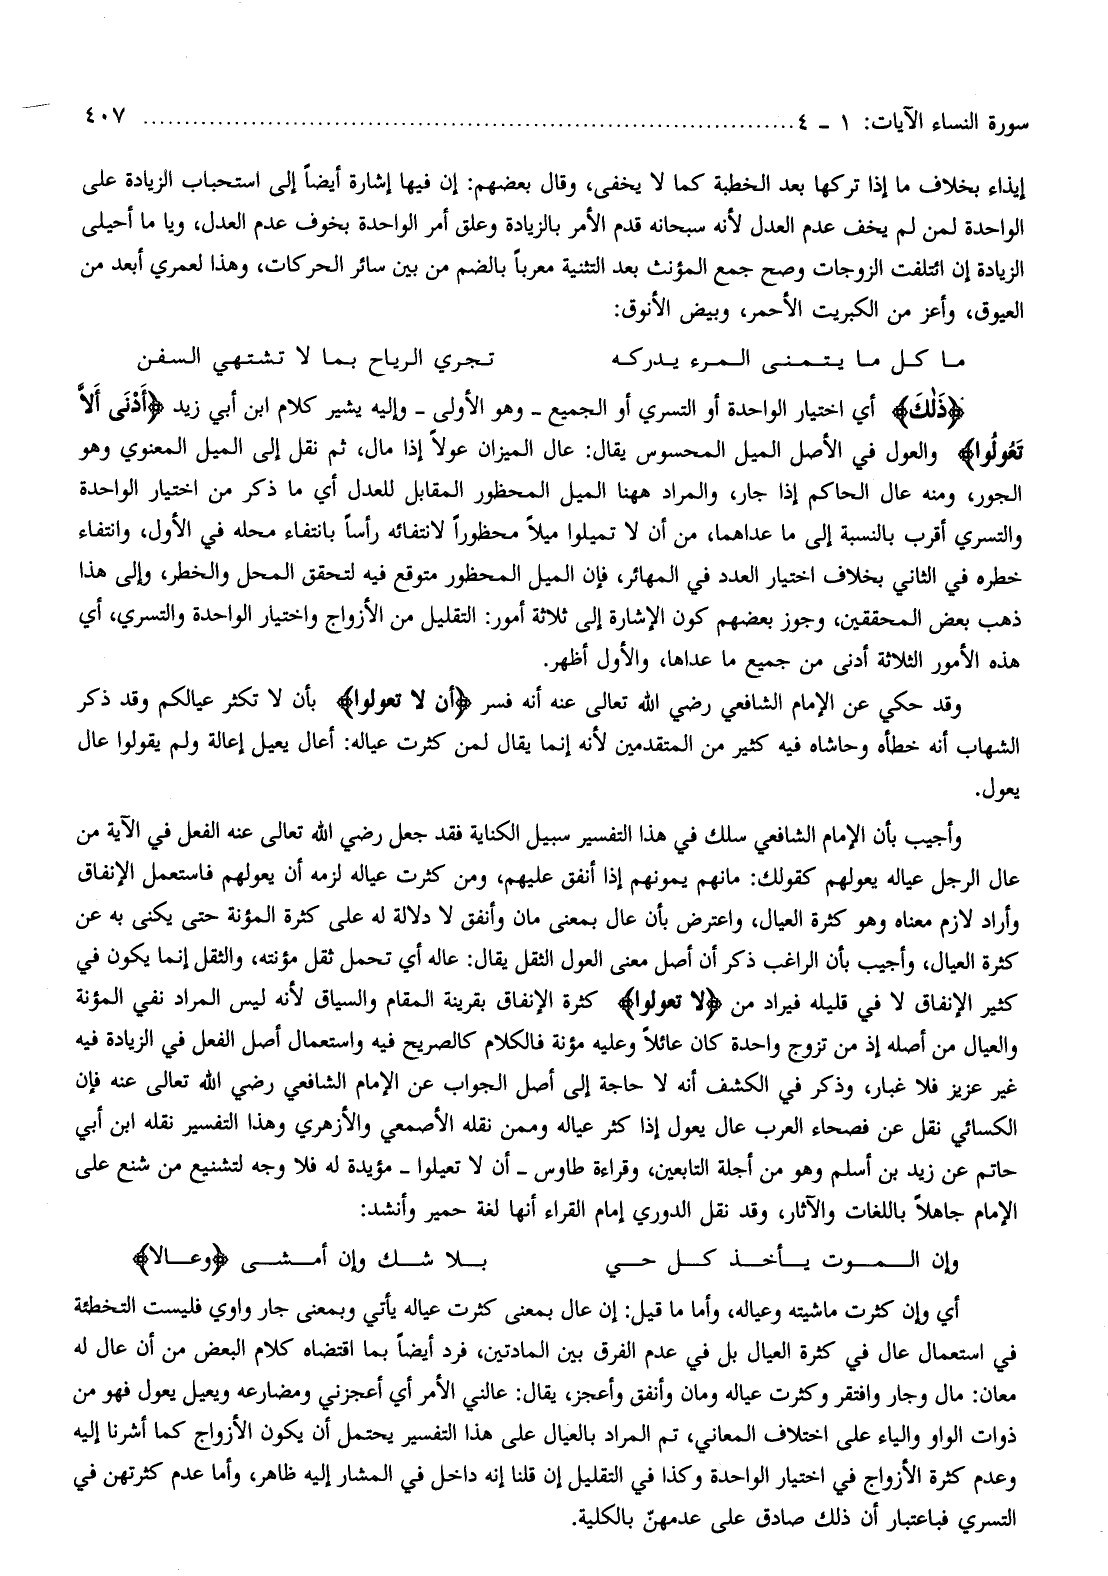 سورة النساء الآيات: ١ - ٤ ........................................................................ ٤٠٧
إيذاء بخلاف ما إذا تركها بعد الخطبة كما لا يخفى، وقال بعضهم: إن فيها إشارة أيضاً إلى استحباب الزيادة على
الواحدة لمن لم يخف عدم العدل لأنه سبحانه قدم الأمر بالزيادة وعلق أمر الواحدة بخوف عدم العدل، ويا ما أحيلى
الزيادة إن ائتلفت الزوجات وصح جمع المؤنث بعد التثنية معرباً بالضم من بين سائر الحركات، وهذا لعمري أبعد من
العيوق، وأعز من الكبريت الأحمر، وبيض الأنوق:
ما كل ما يتمنى المرء يدركه تجري الرياح بما لا تشتهي السفن
﴿ذَلِكَ﴾ أي اختيار الواحدة أو التسري أو الجميع ـ وهو الأولى ـ وإليه يشير كلام ابن أبي زيد ﴿أَدْنَى أَلاَّ
تَعُولُوا﴾ والعول في الأصل الميل المحسوس يقال: عال الميزان عولاً إذا مال، ثم نقل إلى الميل المعنوي وهو
الجور، ومنه عال الحاكم إذا جار، والمراد ههنا الميل المحظور المقابل للعدل أي ما ذكر من اختيار الواحدة
والتسري أقرب بالنسبة إلى ما عداهما، من أن لا تميلوا ميلاً محظوراً لانتفائه رأساً بانتفاء محله في الأول، وانتفاء
خطره في الثاني بخلاف اختيار العدد في المهائر، فإن الميل المحظور متوقع فيه لتحقق المحل والخطر، وإلى هذا
ذهب بعض المحققين، وجوز بعضهم كون الإشارة إلى ثلاثة أمور: التقليل من الأزواج واختيار الواحدة والتسري، أي
هذه الأمور الثلاثة أدنى من جميع ما عداها، والأول أظهر.
وقد حكي عن الإمام الشافعي رضي الله تعالى عنه أنه فسر ﴿أن لا تعولوا﴾ بأن لا تكثر عيالكم وقد ذكر
الشهاب أنه خطأه وحاشاه فيه كثير من المتقدمين لأنه إنما يقال لمن كثرت عياله: أعال يعيل إعالة ولم يقولوا عال
يعول.
وأجيب بأن الإمام الشافعي سلك في هذا التفسير سبيل الكناية فقد جعل رضي الله تعالى عنه الفعل في الآية من
عال الرجل عياله يعولهم كقولك: مانهم يمونهم إذا أنفق عليهم، ومن كثرت عياله لزمه أن يعولهم فاستعمل الإنفاق
وأراد لازم معناه وهو كثرة العيال، واعترض بأن عال بمعنى مان وأنفق لا دلالة له على كثرة المؤنة حتى يكنى به عن
كثرة العيال، وأجيب بأن الراغب ذكر أن أصل معنى العول الثقل يقال: عاله أي تحمل ثقل مؤنته، والثقل إنما يكون في
كثير الإنفاق لا في قليله فيراد من ﴿لا تعولوا﴾ كثرة الإنفاق بقرينة المقام والسياق لأنه ليس المراد نفي المؤنة
والعيال من أصله إذ من تزوج واحدة كان عائلاً وعليه مؤنة فالكلام كالصريح فيه واستعمال أصل الفعل في الزيادة فيه
غير عزيز فلا غبار، وذكر في الكشف أنه لا حاجة إلى أصل الجواب عن الإمام الشافعي رضي الله تعالى عنه فإن
الكسائي نقل عن فصحاء العرب عال يعول إذا كثر عياله وممن نقله الأصمعي والأزهري وهذا التفسير نقله ابن أبي
حاتم عن زيد بن أسلم وهو من أجلة التابعين، وقراءة طاوس ـ أن لا تعيلوا ـ مؤيدة له فلا وجه لتشنيع من شنع على
الإمام جاهلاً باللغات والآثار، وقد نقل الدوري إمام القراء أنها لغة حمير وأنشد:
وإن الموت يأخذ كل حي بلا شك وإن أمشى ﴿وعالا﴾
أي وإن كثرت ماشيته وعياله، وأما ما قيل: إن عال بمعنى كثرت عياله يأتي وبمعنى جار واوي فليست التخطئة
في استعمال عال في كثرة العيال بل في عدم الفرق بين المادتين، فرد أيضاً بما اقتضاه كلام البعض من أن عال له
معان: مال وجار وافتقر وكثرت عياله ومان وأنفق وأعجز، يقال: عالني الأمر أي أعجزني ومضارعه ويعيل يعول فهو من
ذوات الواو والياء على اختلاف المعاني، تم المراد بالعيال على هذا التفسير يحتمل أن يكون الأزواج كما أشرنا إليه
وعدم كثرة الأزواج في اختيار الواحدة وكذا في التقليل إن قلنا إنه داخل في المشار إليه ظاهر، وأما عدم كثرتهن في
التسري فباعتبار أن ذلك صادق على عدمهنّ بالكلية.